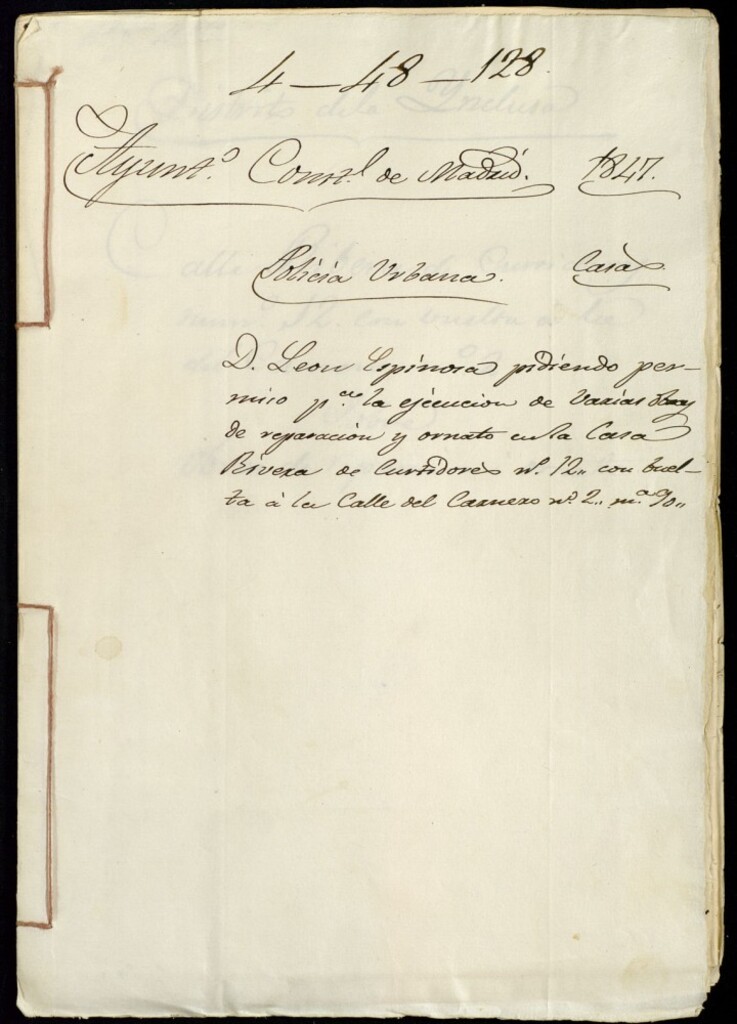 4-48-128.
Ayunt.º Const.l de Madrid. 1847.
Policia Urbana. Casas.
D. Leon Espinosa pidiendo per-
miso p.ª la ejecucion de varias
de reparacion y ornato en la Casa
Rivera de Curtidores nº. 12,, con buel-
ta á la Calle del Carnero nº 2,, m.ª 90,,